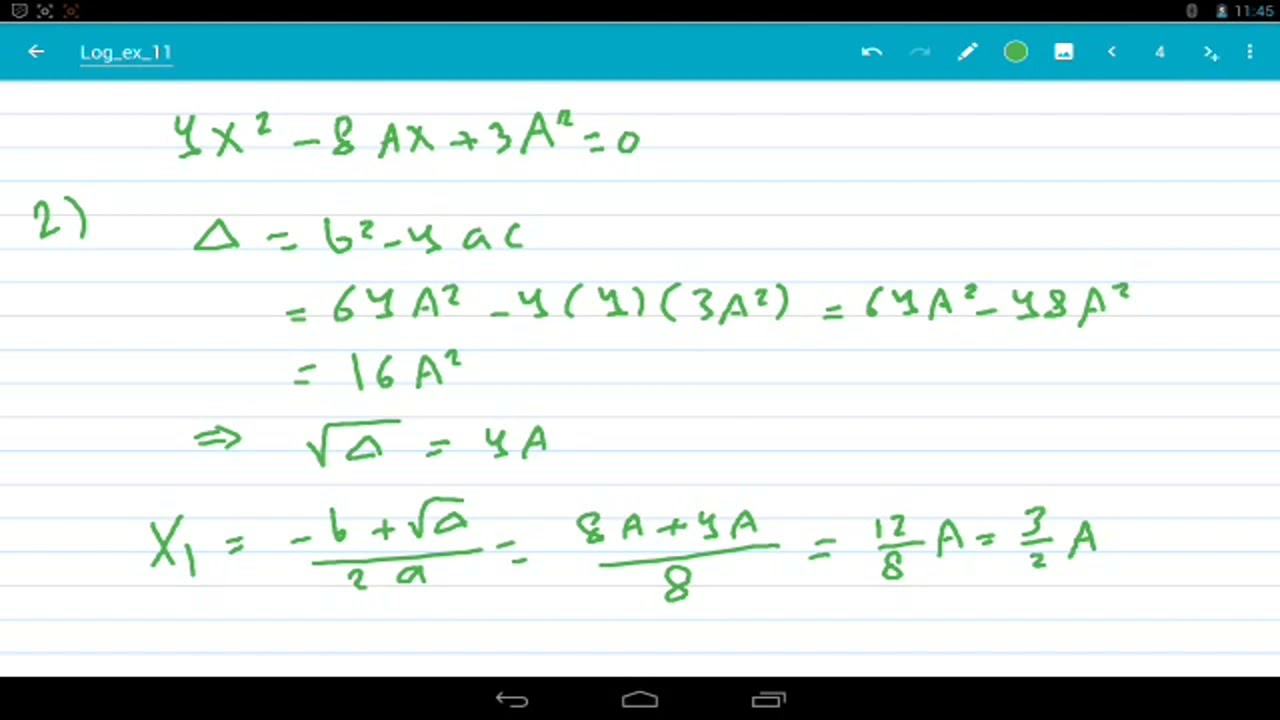 11:45
Log_ex_11
4
4x² - 8Ax + 3A² = 0
2)
Δ = b² - 4ac
= 64A² - 4(4)(3A²) = 64A² - 48A²
= 16A²
⇒ √Δ = 4A
X₁ = (-b + √Δ)/(2a) = (8A + 4A)/8 = 12/8 A = 3/2 A